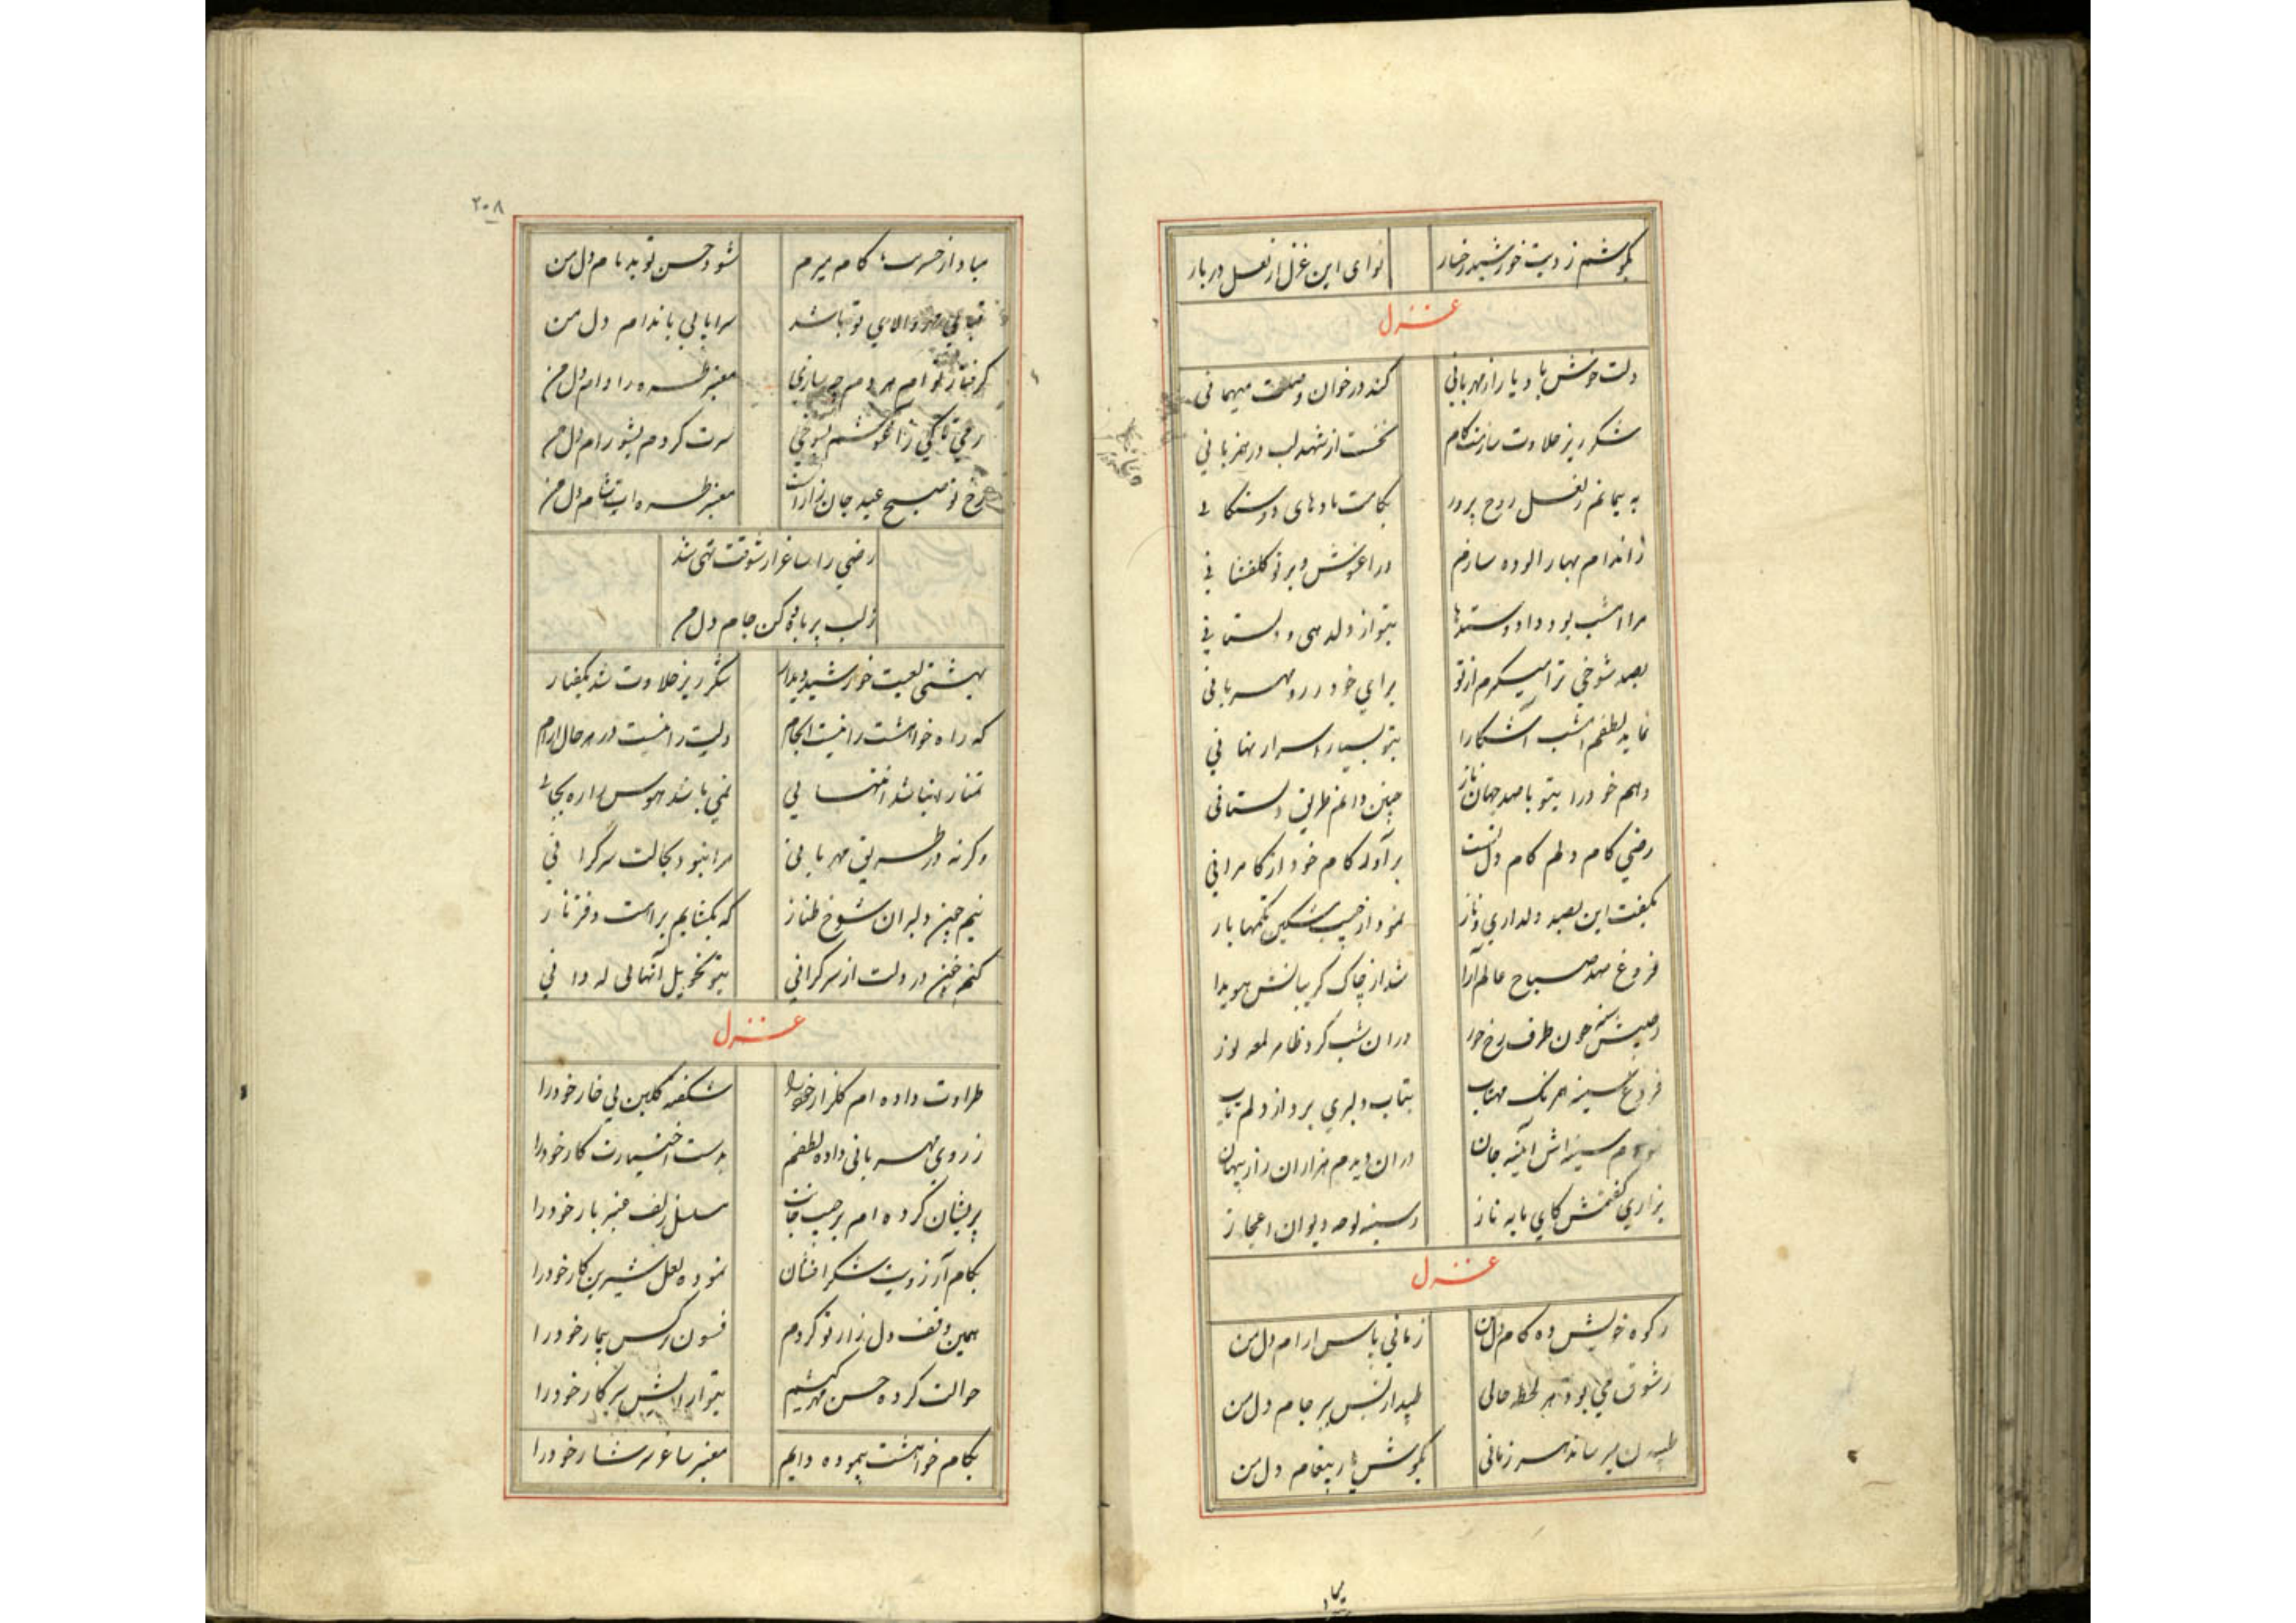 بگوشم زدیت خورشید رخسار نوای این غزل از لعل دربار
غزل
دلت خوش باد یارا ز مهربانی کند در خوان وصلت میهمانی
شکر ریز حلاوت سازمت کام نخست از شهد لب در همزبانی
به پیمانم ز لعل روح پرور بکامت بادهای دوستکانی
ز اندام بهار الوده سازم در اغوش و بر تو گلفشانی
مرا امشب بود داد و ستدها بتو از دلدهی و دلستانی
بصد شوخی ترا میگیرم از تو برای خود ز روی مهربانی
نماید لطفم امشب آشکارا بتو بسیار اسرار نهانی
دهم خود را بتو با صد جهان ناز چنین دانم طریق دلستانی
رضی کام دلم کام دل تست برآور کام خود از کامرانی
بگفت این بصد دلداری و ناز نمود از جیب مشکین تکمها باز
فروغ صد صباح عالم آرا شد از چاک گریبانش هویدا
چون طرف رخ حور در ان شب کرد ظاهر لمعه نور
فروغ سینه همرنک مهتاب بتاب دلبری برد از دلم تاب
سینه اش آئینه جان در ان دیدم هزاران راز پنهان
بزاری گفتمش کای مایه ناز ز سینه لوحه دیوان اعجاز
غزل
زکوة خویش ده کام دل من زمانی باش ارام دل من
ز شوق می بود هر لحظه حالی طپد از بس بر جام دل من
طپیدن میرساند هر زمانی بگوش یار پیغام دل من
۲۰۸
مبادا از حسرت کام میرم شود حسن تو بدنام دل من
قبای والای تو باشد سراپایی باندام دل من
گرفتار توام هر دم چه سازی معنبر طره را دام دل من
سرت کردم بشو رام دل من
رخ تو صبح عید جان زار است معنبر طره ات شام دل من
رضی را ساغر از شوقت تهی شد
ز لب پر باده کن جام دل من
بهشتی لعبت خورشید دیدار شکر ریز حلاوت شد بگفتار
که راه خواهشت را نیست انجام دلیت را نیست در هر حال ارام
تمنا را نباشد انتهایی نمی باشد هوس را ره بجائی
وگرنه در طریق مهربانی مرا نبود بحالت سرگرانی
نیم چون دلبران شوخ طناز که بگشایم برایت دفتر ناز
کنم خون در دلت از سرگرانی بتو تحویل آنهالی که دانی
غزل
طراوت داده ام گلزار خود را شکفته گلبن بی خار خود را
ز روی مهربانی داده لطفم بدست اختیارت کار خود را
پریشان کرده ام بر جیب جانت سنبل زلف عنبر بار خود را
بکام آرزویت شکر افشان نموده لعل شیرین کار خود را
همین وقف دل زار تو کردم فسون نرگس بیمار خود را
حوالت کرده حسن مهر کیشم بتو ارایش سرکار خود را
بکام خواهشت پیموده دایم معنبر ساغر سرشار خود را